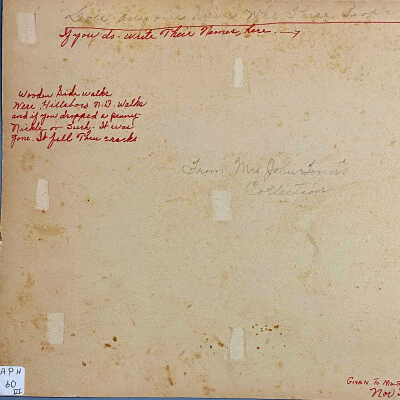 If you do. write Their Names here. →
Wooden Side walks
Were. Hillsboro N.D. Walks
and if you dropped a peanut
Nickle or Such. It was
gone. It fell Thru cracks
From Mrs John
Collection
Given To
Nov
APH
60
III